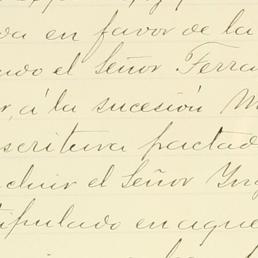 da en favor de la
ado el Señor Ferra
r, á la sucesión M
scritura pactad
cluir el Señor Jor
tipulado en aque